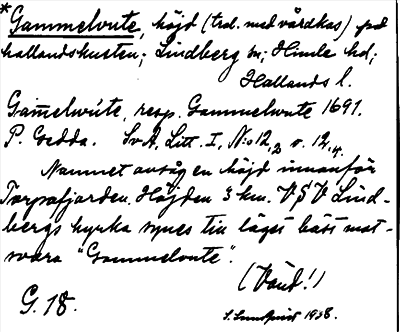 *Gammelvute, höjd (trol. med vårdkas) på
hallandskusten; Lindberg sn; Himle hd;
Hallands l.
Gam̄elwúte, resp. Gammelwute 1691.
P. Gedda. SvA, Litt. I, N:o 12,2 o. 12,4.
Namnet avsåg en höjd innanför
Torpafjorden. Höjden 3 km. VSV Lind-
bergs kyrka synes till läget bäst mot-
svara "Gammelvute".
(Vänd!)
G. 18. 1938.